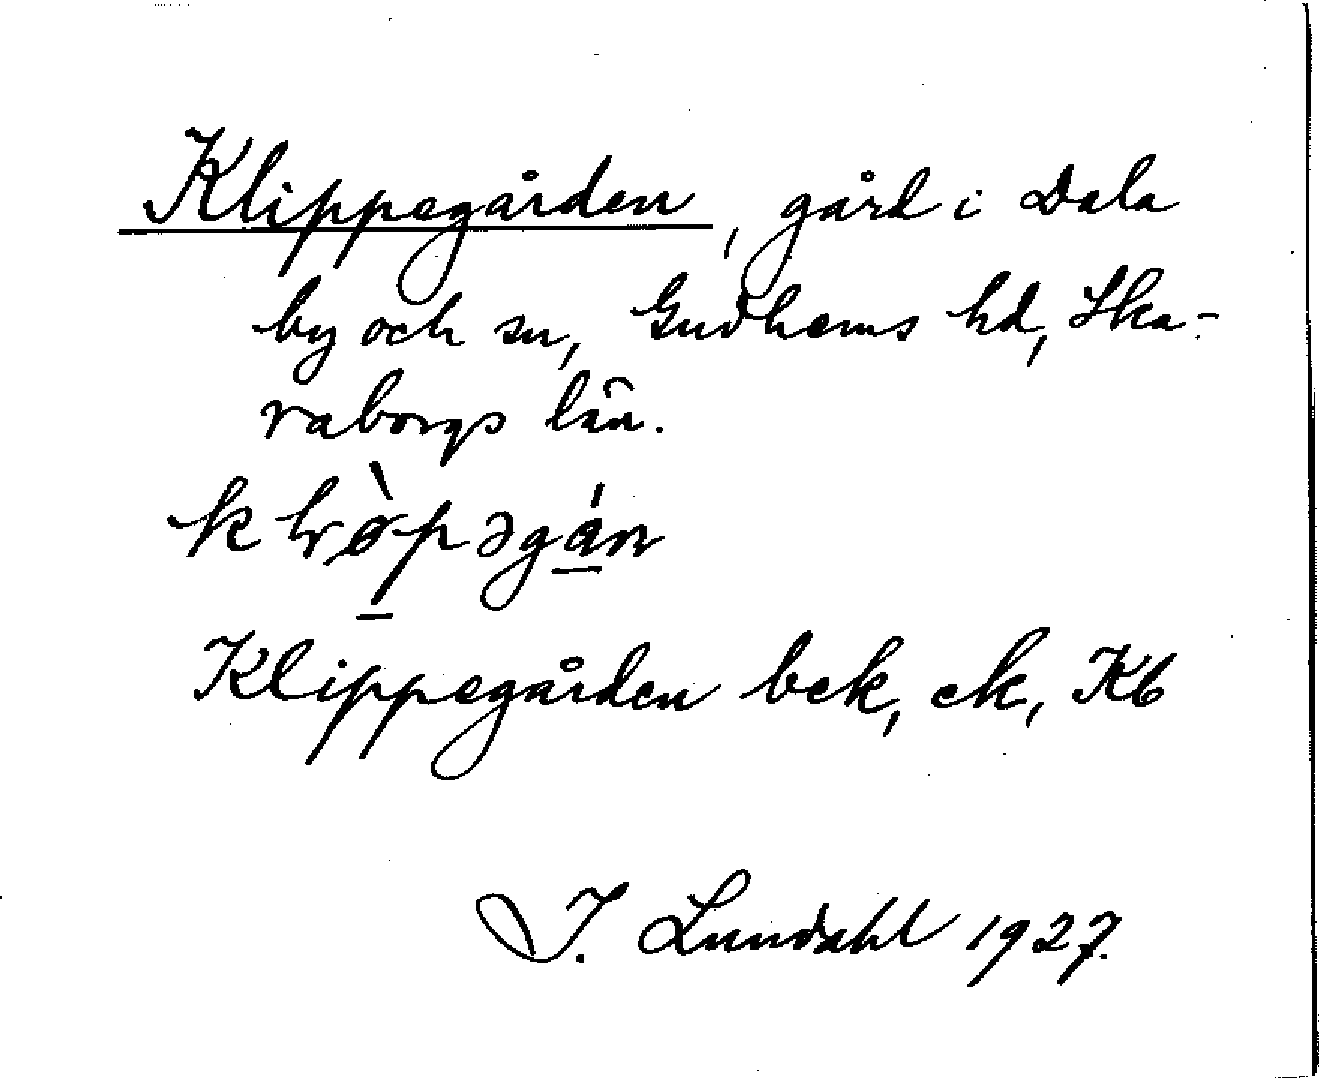 Klippegården, gård i Dala
by och sn, Gudhems hd, Ska-
raborgs län.
Klippegården bek, ek, Kb
I. Lundahl 1927.